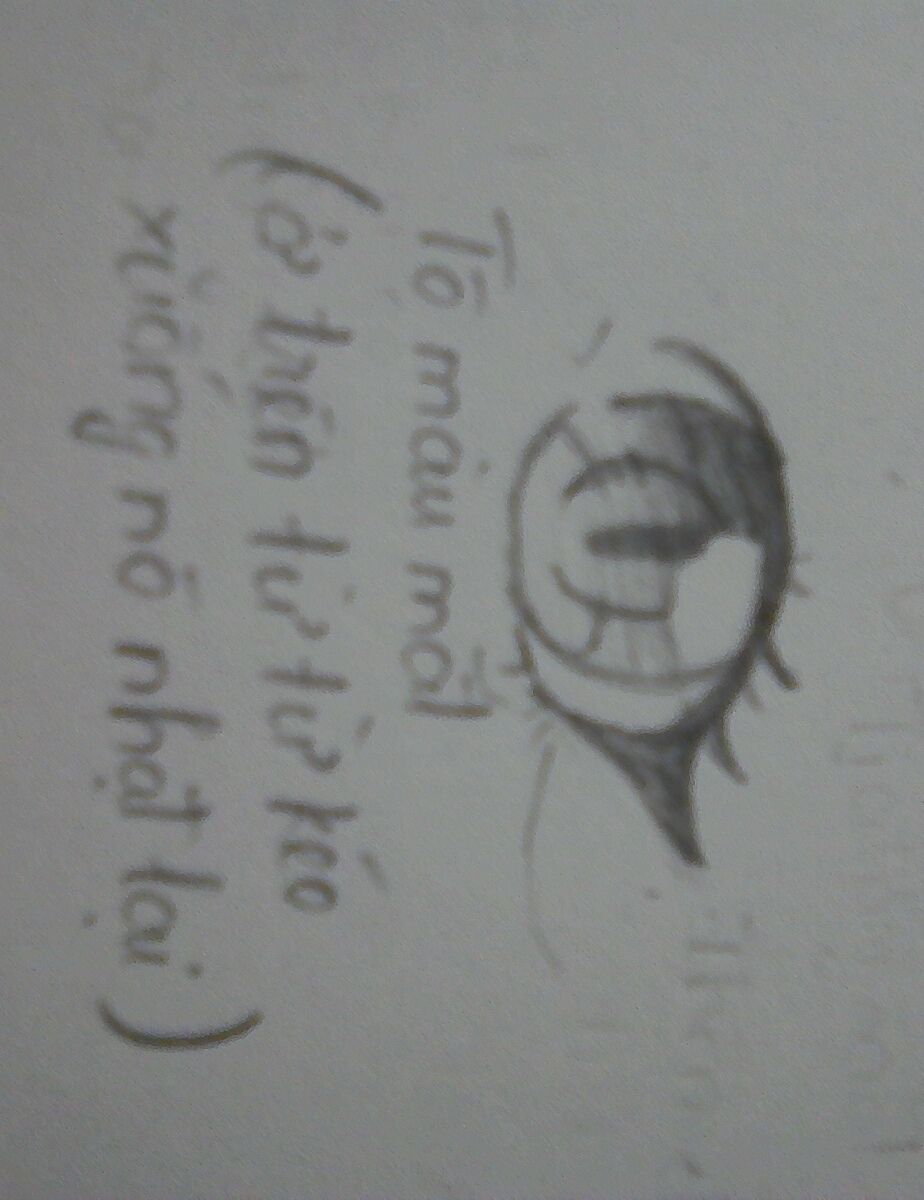 Tô màu mắt
(ở trên từ từ kéo
xuống nó nhạt lại)